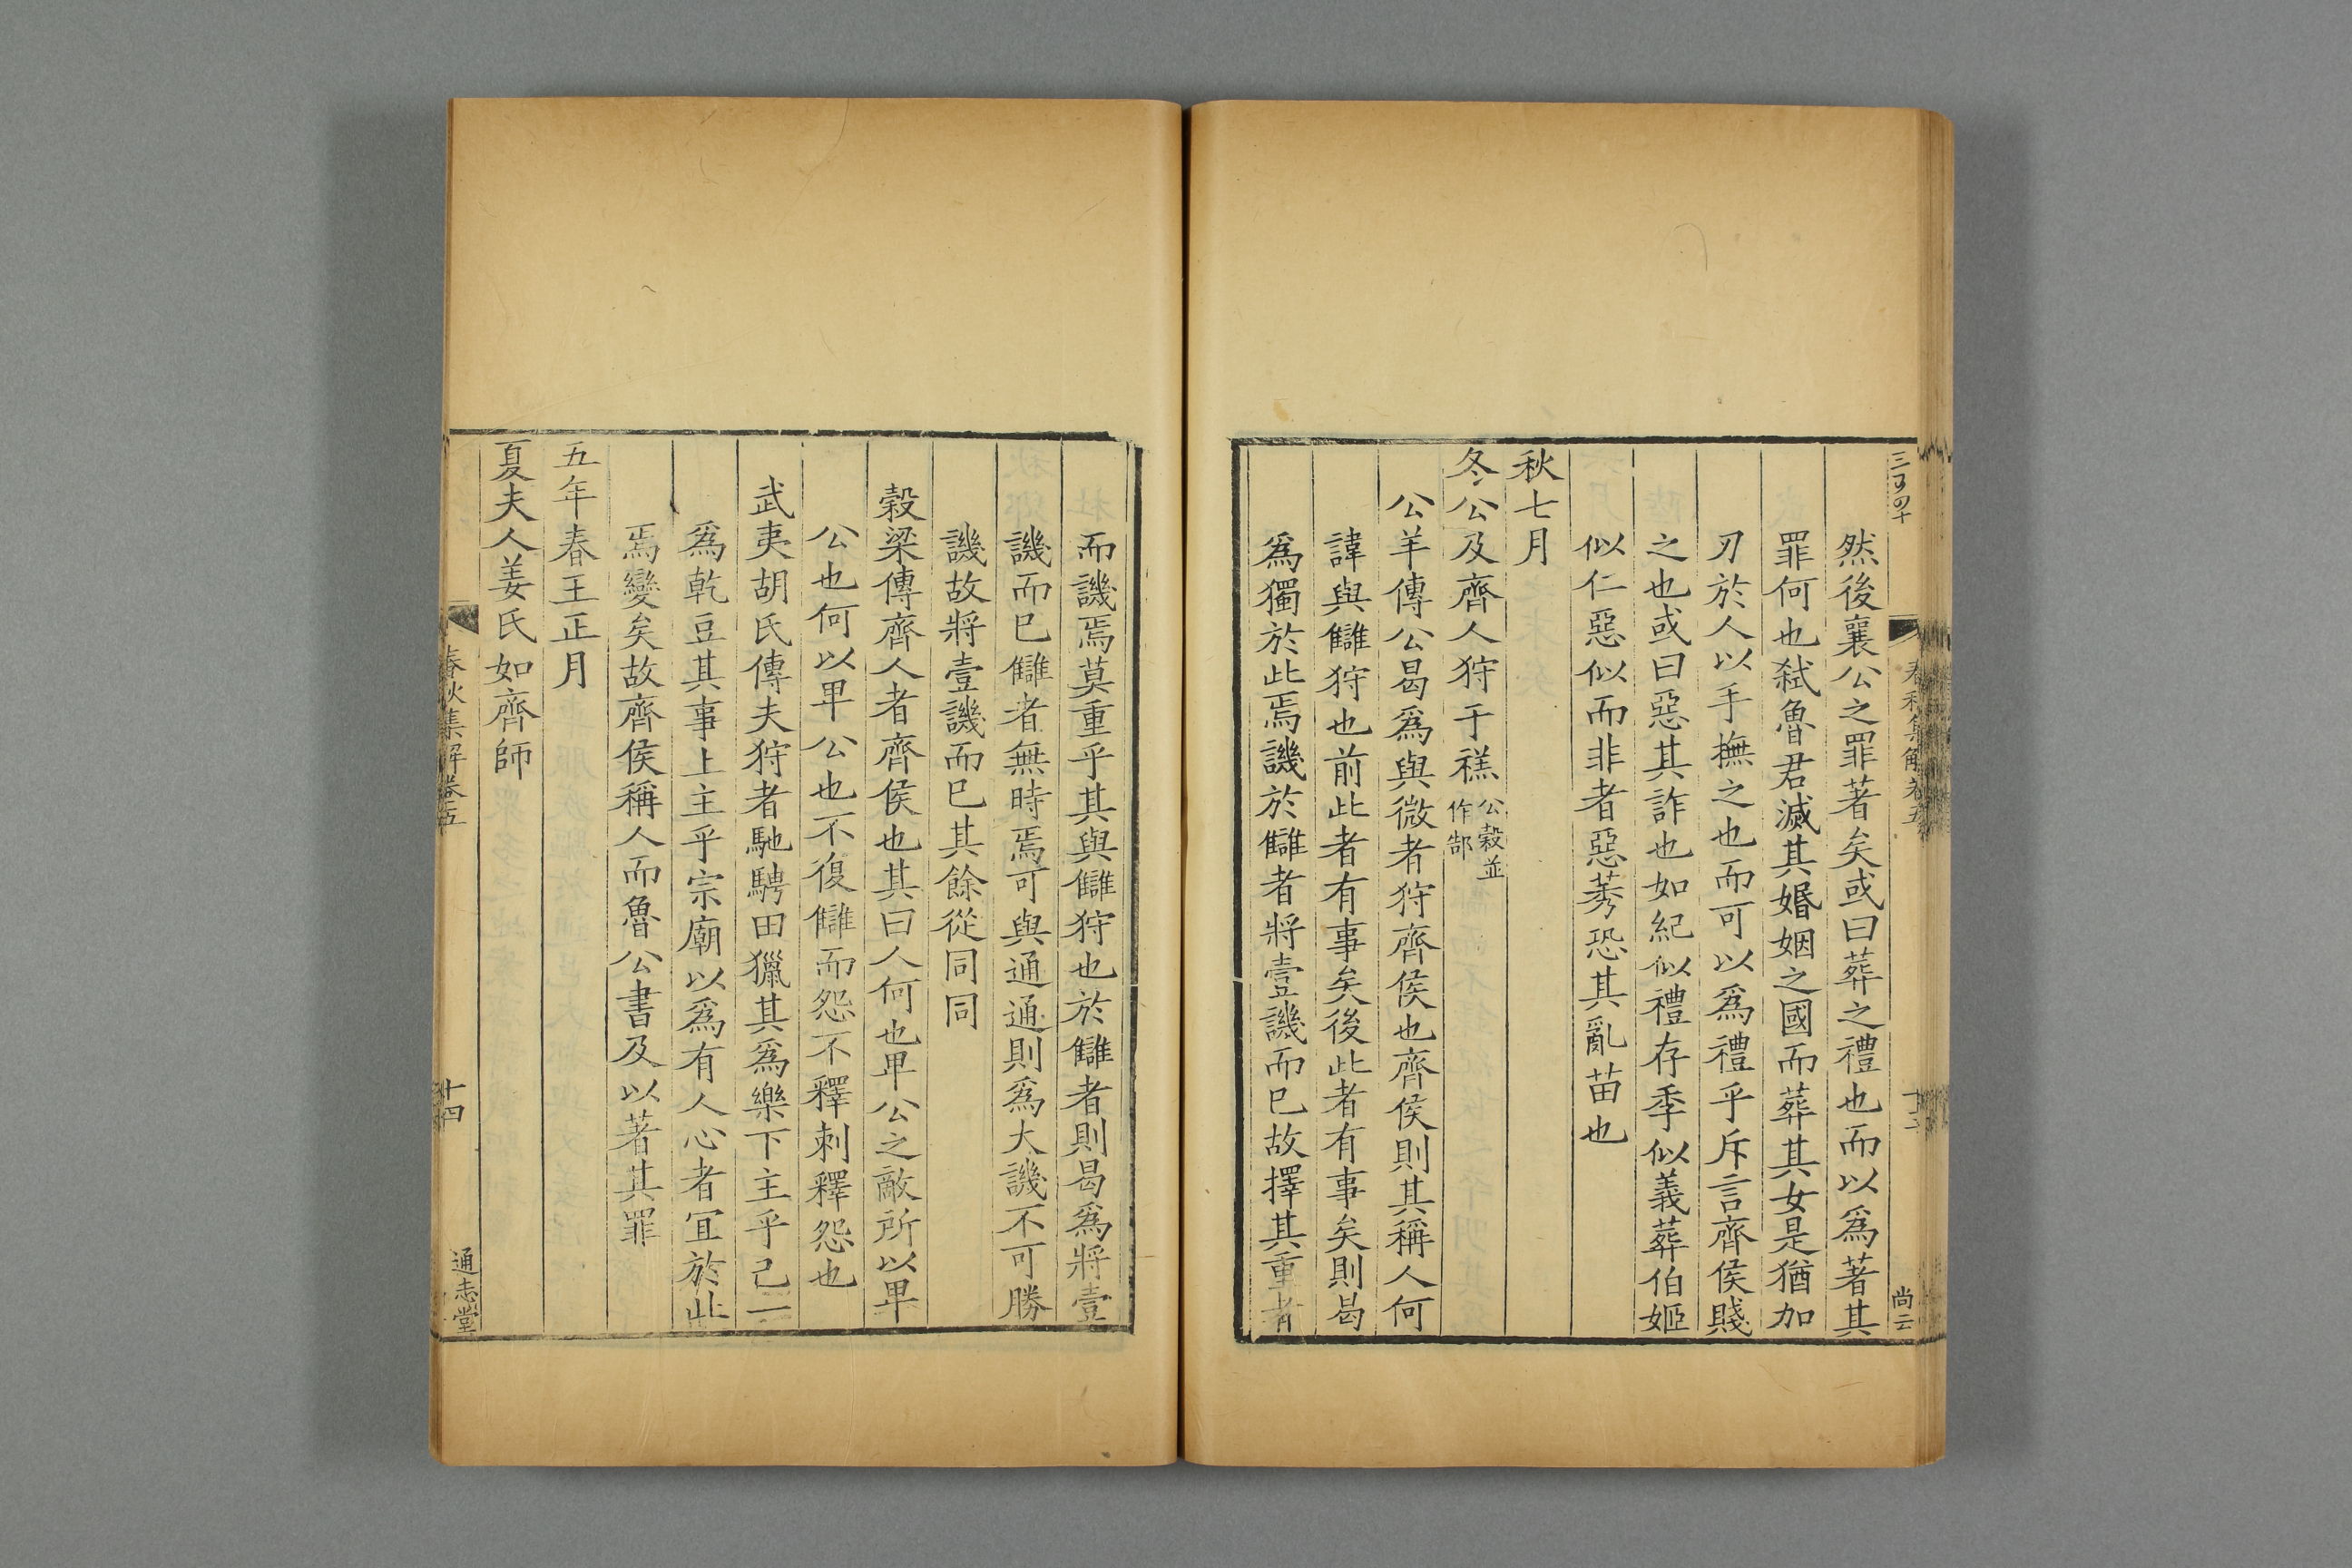 三可四十
春秋集解卷五
尚云
然後襄公之罪著矣或曰葬之禮也而以爲著其
罪何也弑魯君滅其婚姻之國而葬其女是猶加
刃於人以手撫之也而可以爲禮乎斥言齊侯賤
之也或曰惡其詐也如紀似禮存季似義葬伯姬
似仁惡似而非者惡莠恐其亂苗也
秋七月
冬公及齊人狩于禚公穀並
作郜
公羊傳公曷爲與微者狩齊侯也齊侯則其稱人何
諱與讎狩也前此者有事矣後此者有事矣則曷
爲獨於此焉譏於讎者將壹譏而已故擇其重者
而譏焉莫重乎其與讎狩也於讎者則曷爲將壹
譏而已讎者無時焉可與通通則爲大譏不可勝
譏故將壹譏而已其餘從同同
穀梁傳齊人者齊侯也其曰人何也卑公之敵所以卑
公也何以卑公也不復讎而怨不釋刺釋怨也
武夷胡氏傳夫狩者馳騁田獵其爲樂下主乎己一
爲乾豆其事上主乎宗廟以爲有人心者宜於此
焉變矣故齊侯稱人而魯公書及以著其罪
五年春王正月
夏夫人姜氏如齊師
春秋集解卷五
十四
通志堂